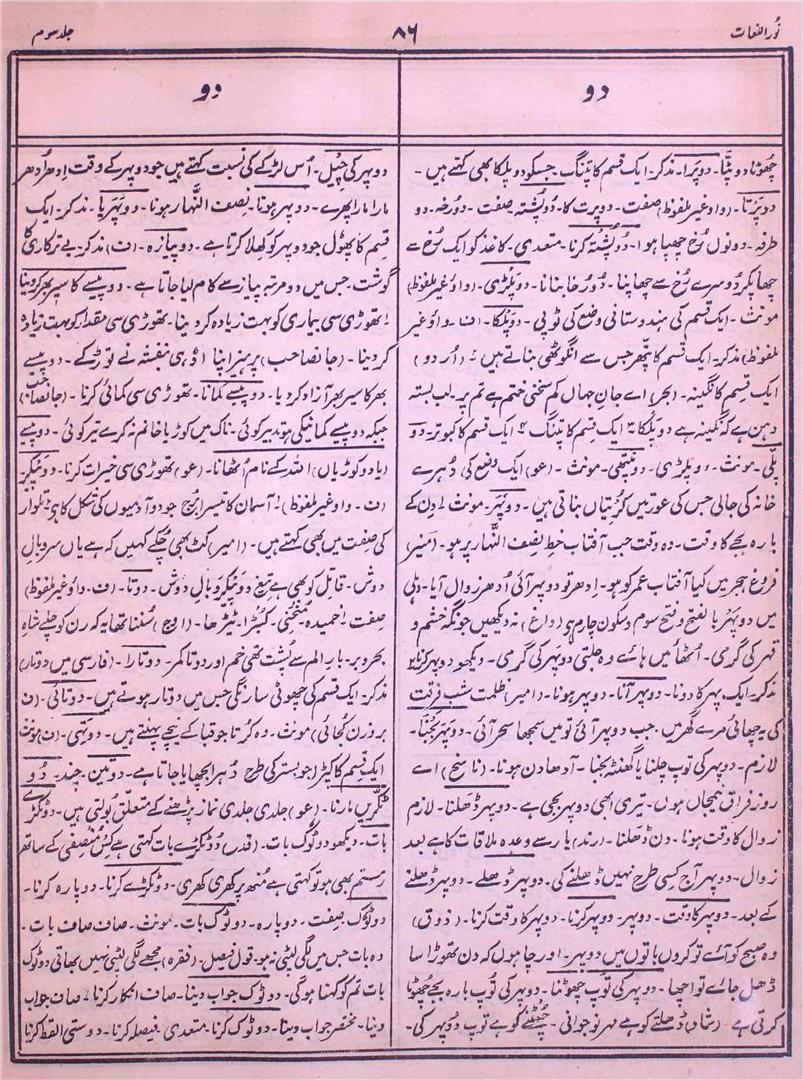 نُور اللغات
۸۶
جلد سوم
دو
دو
چھوٹا دوپٹّا۔ دوپَرا۔ مذکر۔ ایک قسم کا پتنگ۔ جسکو دوپلکا بھی کہتے ہیں۔
دوپَرتا۔ (واو غیر ملفوظ) صفت۔ دوپرت کا۔ دوپُشتہ صفت۔ دو رخہ۔ دو
طرفہ۔ دونوں رُخ چھپا ہوا۔ دوپُشتہ کرنا۔ متعدی۔ کاغذ کو ایک رُخ سے
چھاپکر دوسرے رُخ سے چھاپنا۔ دو رُخا بنانا۔ دوپلڑی۔ (واؤ غیر ملفوظ)
مونث۔ ایک قسم کی ہندوستانی وضع کی ٹوپی۔ دوپلکا۔ (ف۔ واؤ غیر
ملفوظ) مذکر۔ ایک قسم کا پتھر جس سے انگوٹھی بناتے ہیں ۲۔ (اُردو)
ایک قسم کا نگینہ۔ (بحر) اے جانِ جہاں کم سخنی ختم ہے تم پر۔ لب بستہ
دہن ہے کہ نگینہ ہے دوپلکا ۳ ایک قسم کا پتنگ ۴ ایک قسم کا کبوتر۔ دو
پلّی۔ مونث۔ دوپلڑی۔ دوپنتھی۔ مونث۔ (عو) ایک وضع کی دُہرے
خانہ کی جالی جس کی عورتیں کرتیاں بناتی ہیں۔ دوپہر۔ مونث ۱۔ دن کے
بارہ بجے کا وقت۔ وہ وقت جب آفتاب خط نصف النّہار پر ہو۔ (منیر)
فروغ ہجر میں کیا آفتابِ عمر کو ہو۔ اِدھر تو دوپہر آئی اُدھر زوال آیا۔ دہلی
میں دوپہر بالفتح و فتح سوم و سکون چارم ہے (داغ) نہ دیکھیں چونکہ خشم و
قہر کی گرمی۔ اُٹھا میں ہائے وہ جلتی دوپہر کی گرمی۔ دیکھو دوپہر کرنا ۲
مذکر۔ ایک پہر کا دونا۔ دوپہر آنا۔ دوپہر ہونا۔ (امیر) ظلمت شب فرقت
کی یہ چھائی مرے گھر میں۔ جب دوپہر آئی تو میں سمجھا سحر آئی۔ دوپہر بجنا۔
لازم۔ دوپہر کی توپ چلنا یا گھنٹہ بجنا۔ آدھا دن ہونا۔ (ناسخ) اے
روزِ فراق نیمجاں ہوں۔ تیری ابھی دوپہر بجی ہے۔ دوپہر ڈھلنا۔ لازم
زوال کا وقت ہونا۔ دن ڈھلنا۔ (رند) یار سے وعدہ ملاقات کا ہے بعد
زوال۔ دوپہر آج کسی طرح نہیں ڈھلنے کی۔ دوپہر ڈھلے۔ دوپہر ڈھلنے
کے بعد۔ دوپہر کا وقت۔ دوپہر۔ دوپہر کرنا۔ دوپہر کا وقت کرنا۔ (ذوق)
وہ صبح کو آئے تو کروں باتوں میں دوپہر۔ اور چاہوں کہ دن تھوڑا سا
ڈھل جائے تو اچھا۔ دوپہر کی توپ چھوٹنا۔ دوپہر کی توپ بارہ بجے چھوٹا
کرتی ہے۔ (شاد) ڈھلتے کو ہے مہر نوجوانی۔ چھٹنے کو ہے توپ دوپہر کی۔
دوپہر کی چیل۔ اُس لڑکے کی نسبت کہتے ہیں جو دوپہر کے وقت اِدھر اُدھر
مارا مارا پھرے۔ دوپہر ہونا۔ نصف النّہار ہونا۔ دوپہریا۔ مذکر۔ ایک
قسم کا پھول جو دوپہر کو کھلا کرتا ہے۔ دوپیازہ۔ (ف) مذکر۔ بے ترکاری کا
گوشت۔ جس میں دو مرتبہ پیاز سے کام لیا جاتا ہے۔ دو پیسے کا سیر بھر کر دینا
۱ تھوڑی سی بیماری کو بہت زیادہ کر دینا۔ تھوڑی سی مقدار کو بہت زیادہ
کر دینا۔ (جانصاحب) پرہیز اپنا اَوہی بنفشہ نے توڑ کے۔ دو پیسے
بھر کا سیر بھر آزار کر دیا۔ دو پیسے کمانا۔ تھوڑی سی کمائی کرنا۔ (جانصاحب)
جبکہ دو پیسے کمانیکی ہو تدبیر کوئی۔ ناک میں کوڑیا خانم نہ کرے تیر کوئی۔ دو پیسے
(یا دو کوڑیاں) اللہ کے نام اُٹھانا۔ (عو) تھوڑی سی خیرات کرنا۔ دوپیکر
(ف۔ واو غیر ملفوظ) ۱۔ آسمان کا تیسرا برج جو دو آدمیوں کی شکل کا ہے ۲ تلوار
کی صفت میں بھی کہتے ہیں۔ (امیر) کٹ بھی چکے کہیں کہ ہے یاں سر وبالِ
دوش۔ قاتل کو بھی ہے تیغ دوپیکر وبالِ دوش۔ دوتا۔ (ف۔ واؤ غیر ملفوظ)
صفت ۱ خمیدہ۔ مُنحنی۔ کُبڑا۔ ٹیڑھا۔ (اوج) سُنتا تھا یہ کہ رن کو چلے شاہِ
بحر و بر۔ بارِ الم سے پُشت تھی خم اور دوتا کمر۔ دوتارا۔ (فارسی میں دوتار)
مذکر۔ ایک قسم کی چھوٹی سارنگی جس میں دو تار ہوتے ہیں۔ دوتائی۔ (ف
بر وزن کُجائی) مونث۔ وہ کُرتا جو قبا کے نیچے پہنتے ہیں۔ دوتہی۔ (ف) مونث
ایک قسم کا کپڑا جو بستر کی طرح دُہرا بچھایا جاتا ہے۔ دو تین۔ چند۔ دُو
ٹکّریں مارنا۔ (عو) جلدی جلدی نماز پڑھنے کے متعلق بولتی ہیں۔ دو ٹکڑے
بات۔ دیکھو دو ٹوک بات۔ (قدر) دو ٹکڑے بات کہتی ہے کس منصفی کے ساتھ
رستم بھی ہو تو کہتی ہے مُنھ پر کھری کھری۔ دو ٹکڑے کرنا۔ دوپارہ کرنا۔
دو ٹوک۔ صفت۔ دوپارہ۔ دو ٹوک بات۔ مونث۔ صاف صاف بات۔
وہ بات جس میں لگی لپٹی نہ ہو۔ قول فیصل۔ (فقرہ) مجھے لگی لپٹی نہیں بھاتی دو ٹوک
بات تم کو کہنا ہوگی۔ دو ٹوک جواب دینا۔ صاف انکار کرنا۔ صاف جواب
دینا۔ مختصر جواب دینا۔ دو ٹوک کرنا۔ متعدی۔ فیصلہ کرنا۔ دوستی القط کرنا